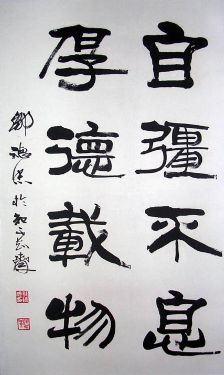 自彊不息
厚德載物
鄒德忠於